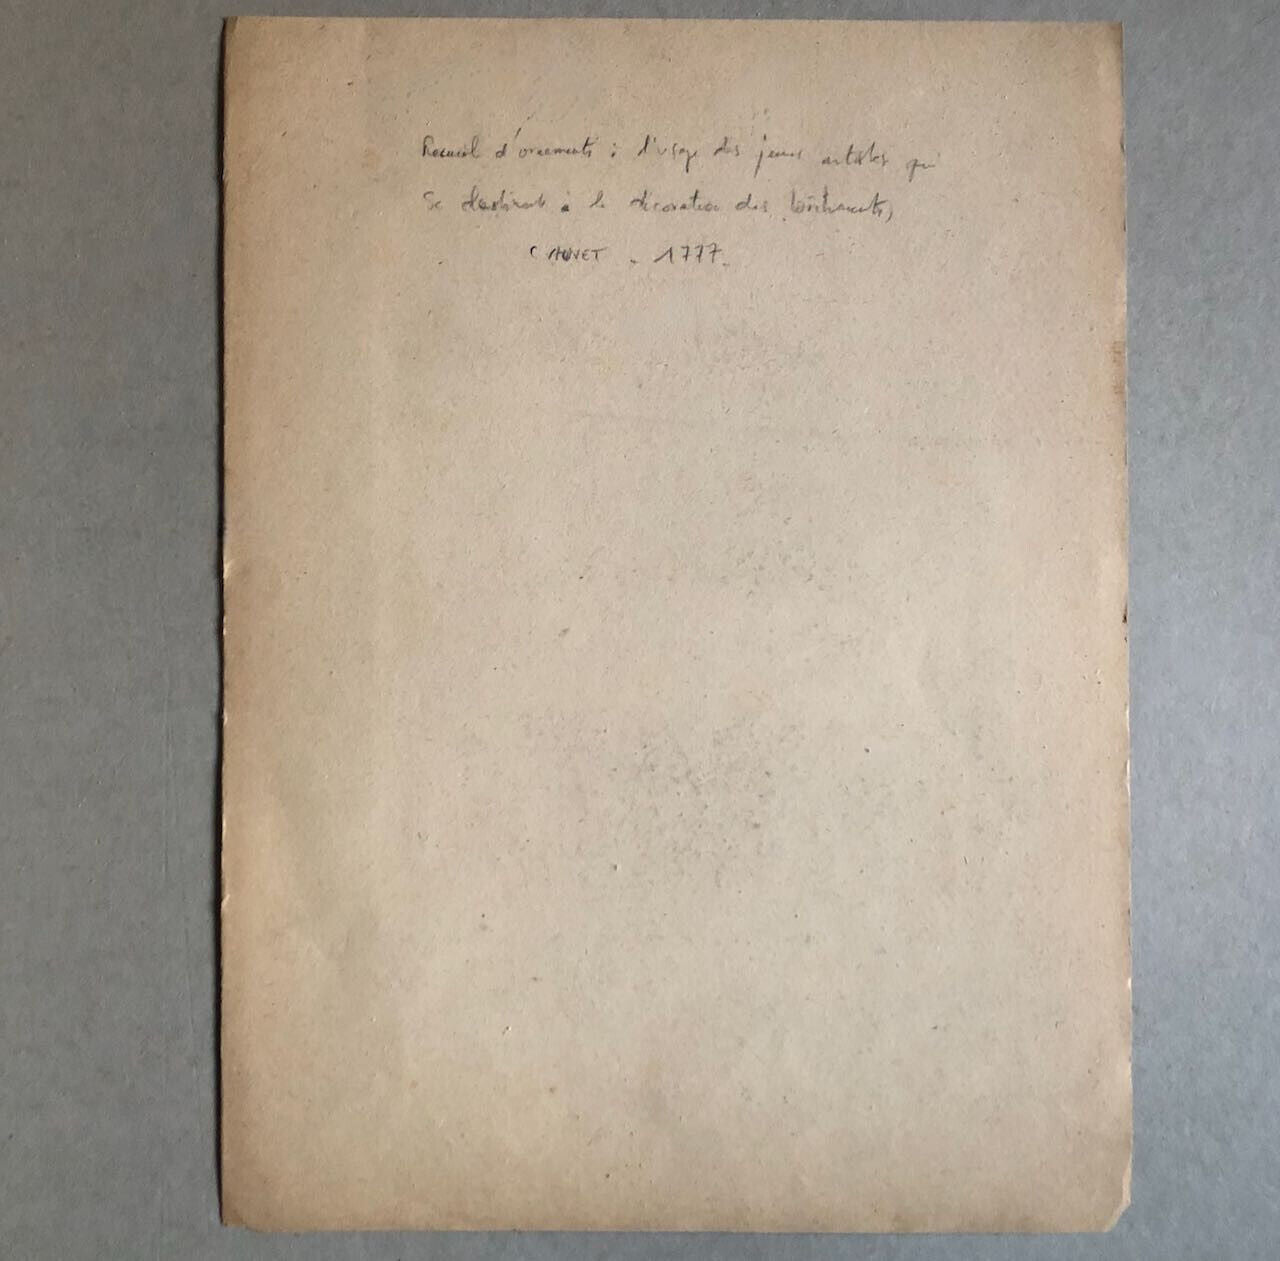 Recueil d'ornements à l'usage des jeunes artistes qui
Se destinent à la décoration des bâtiments,
CAUVET - 1777.